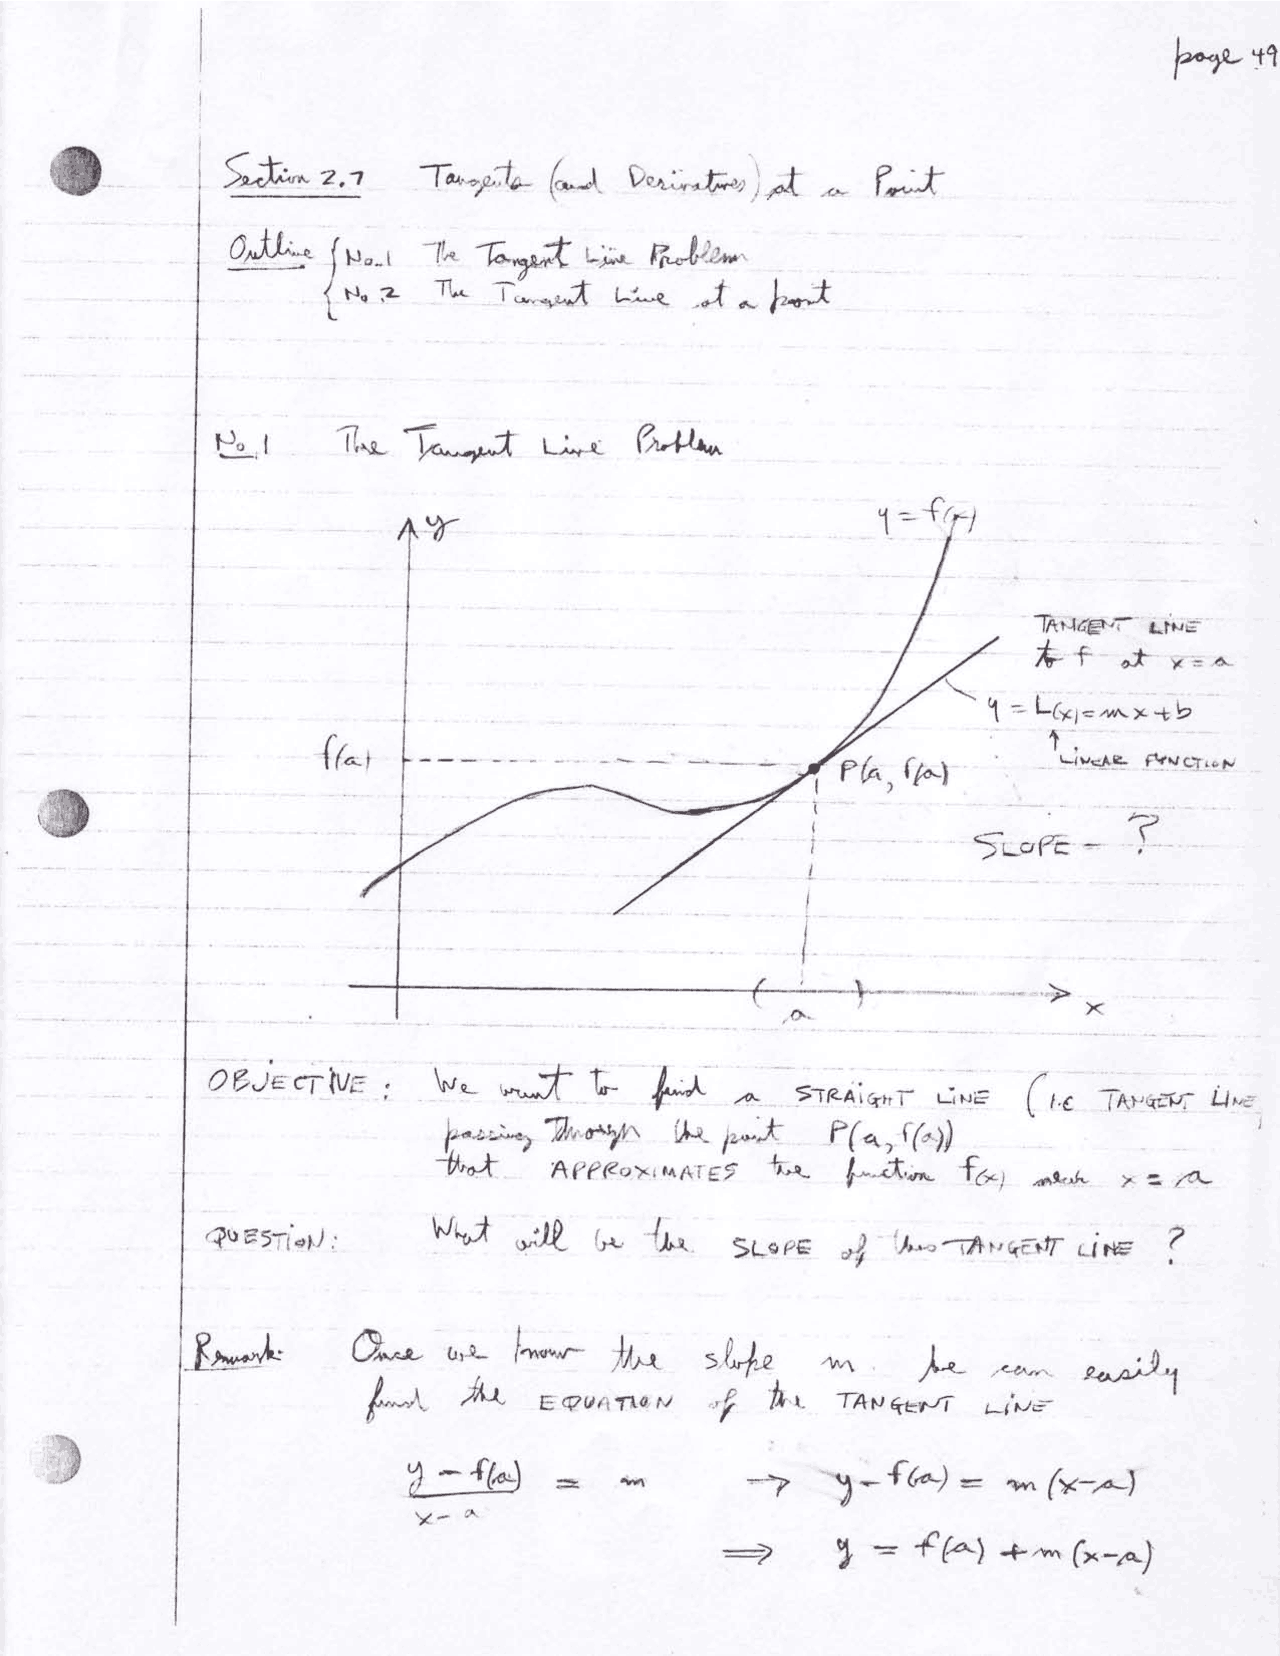 page 49
Section 2.7 Tangents (and Derivatives) at a Point
Outline { No.1 The Tangent Line Problem
{ No.2 The Tangent Line at a point
No.1 The Tangent Line Problem
y
y = f(x)
TANGENT LINE
to f at x = a
y = L(x) = mx + b
↑ LINEAR FUNCTION
f(a)
P(a, f(a))
SLOPE = ?
( a )
x
OBJECTIVE: We want to find a STRAIGHT LINE (i.e TANGENT LINE)
passing through the point P(a, f(a))
that APPROXIMATES the function f(x) near x = a
QUESTION: What will be the SLOPE of this TANGENT LINE ?
Remark: Once we know the slope m. we can easily
find the EQUATION of the TANGENT LINE
y - f(a) / x - a = m → y - f(a) = m (x-a)
⇒ y = f(a) + m (x-a)